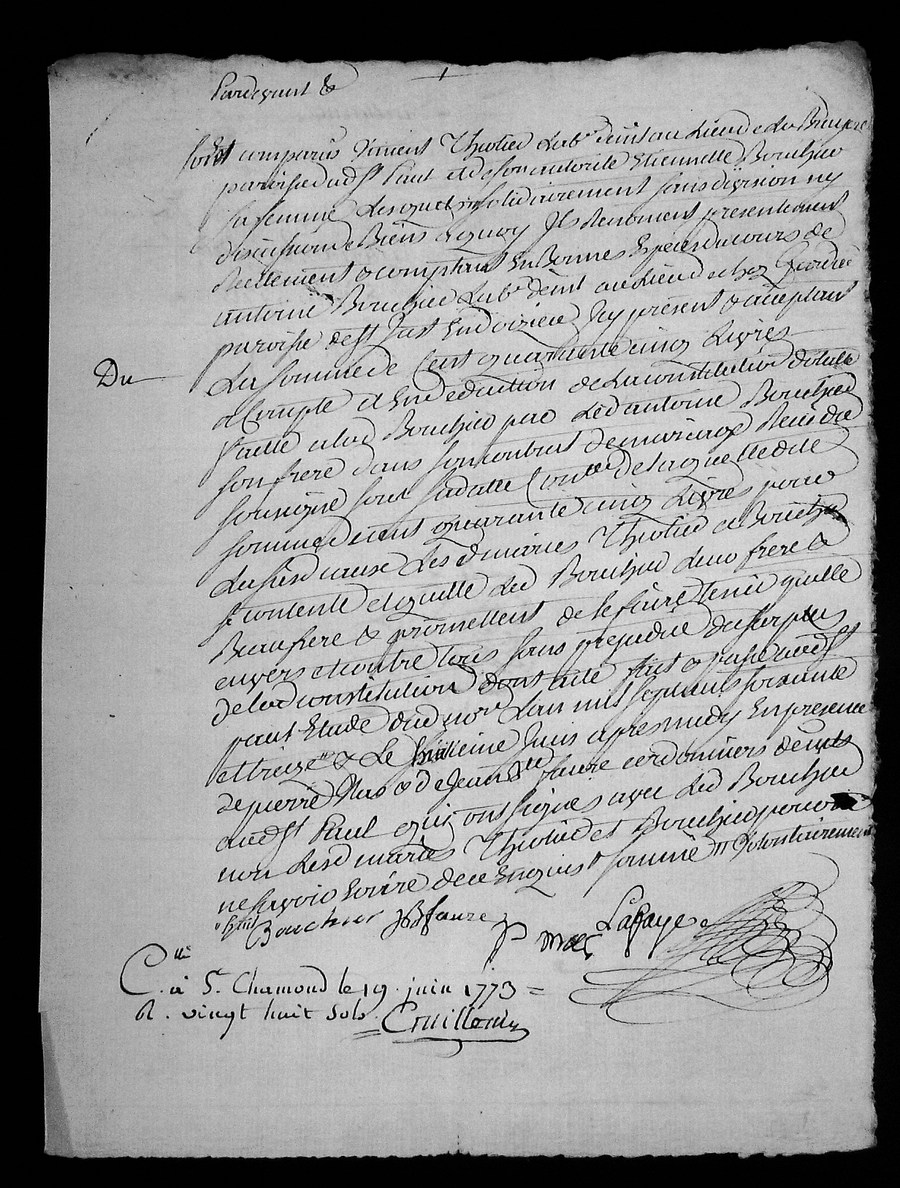 Pardevant &
sont comparus Vincent Thiolier Lab.r deint au lieu de La Bruyere
paroisse dud St Paul et de son autorité Etiennette Bouchier
sa femme Lesquels solidairement sans division ny
discution de Biens ayquoy Ils Renoncent presentement
Reellement & comptant En Bonnes Especes du cours de
antoine Bouchier Lab.r deint au Lieu de chez
paroisse de St Just En doizieu Icy present & acceptant
La somme de Cent quarante cinq Livres
Du
a Compte et En deduction de La constitution dotalle
faitte a lad Bouchier par Led antoine Bouchier
son frere dans son contrat de mariage Recû du
sousigné sous sa datte Con.llé de laquelle dite
somme de cent quarante cinq Livres pour
La susd cause Lesd mariés Thiolier et Bouchier
se contente et quitte Led Bouchier Leur frere &
Beaufrere & promettent de le faire tenir quitte
envers et contre tous sans prejudice du surplus
de lad constitution dont acte fait & passé aud St
paul Etude dud no.re L'an mil sept cents soixante
et treize & Le huitieme Juin apres midy En presence
de pierre Mas & de Jean Bte faure cordonniers deints
aud St Paul quy ont signé avec Led Bouchier
non Lesd mariés Thiolier et Bouchier pour
ne sçavoir Ecrire de ce Enquis & sommé Volontairement
Bouchier JBfaure P mas Lafaye
C.lle à St Chamond le 19. juin 1773 =
R. vingt huit sols.